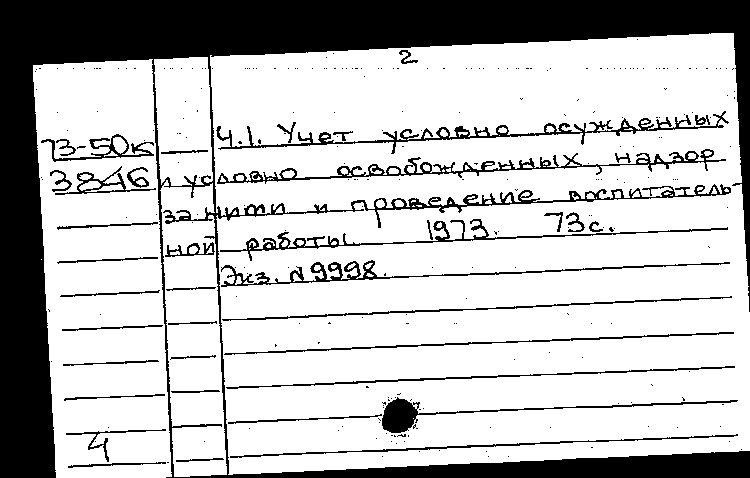 2
73-50к Ч.1. Учет условно осужденных
3846 и условно освобожденных, надзор
за ними и проведение воспитатель-
ной работы. 1973. 73с.
Экз. N9998.
4